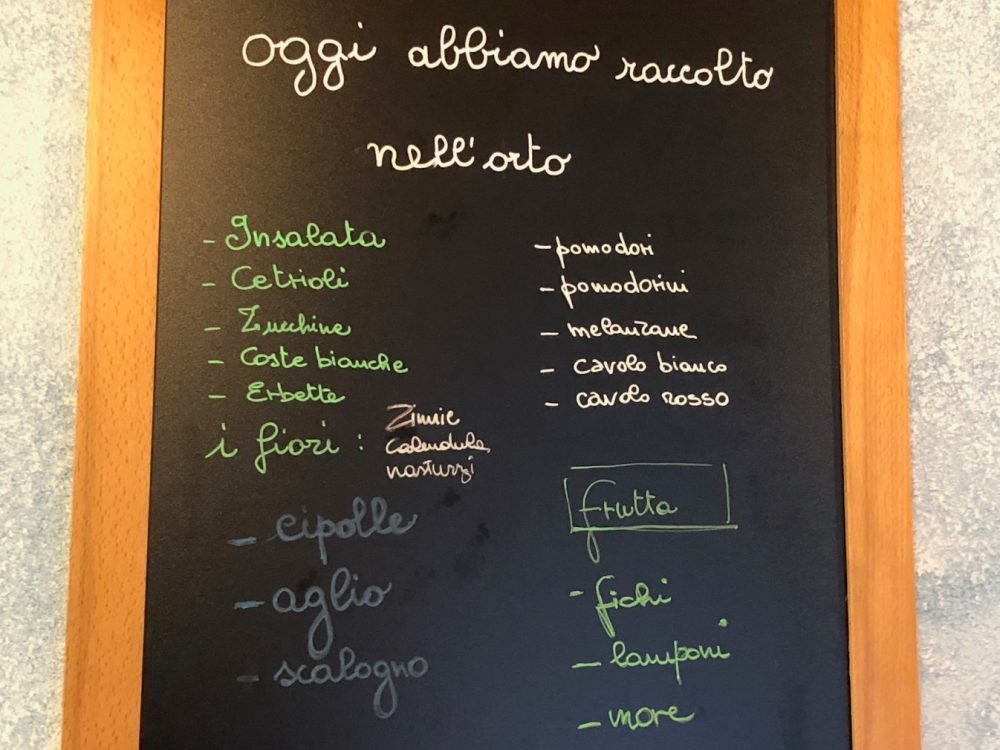 oggi abbiamo raccolto
nell'orto
- Insalata
- Cetrioli
- Zucchine
- Coste bianche
- Erbette
i fiori :
Zinnie
Calendule,
nasturzi
- cipolle
- aglio
- scalogno
- pomodori
- pomodorini
- melanzane
- cavolo bianco
- cavolo rosso
frutta
- fichi
- lamponi
- more